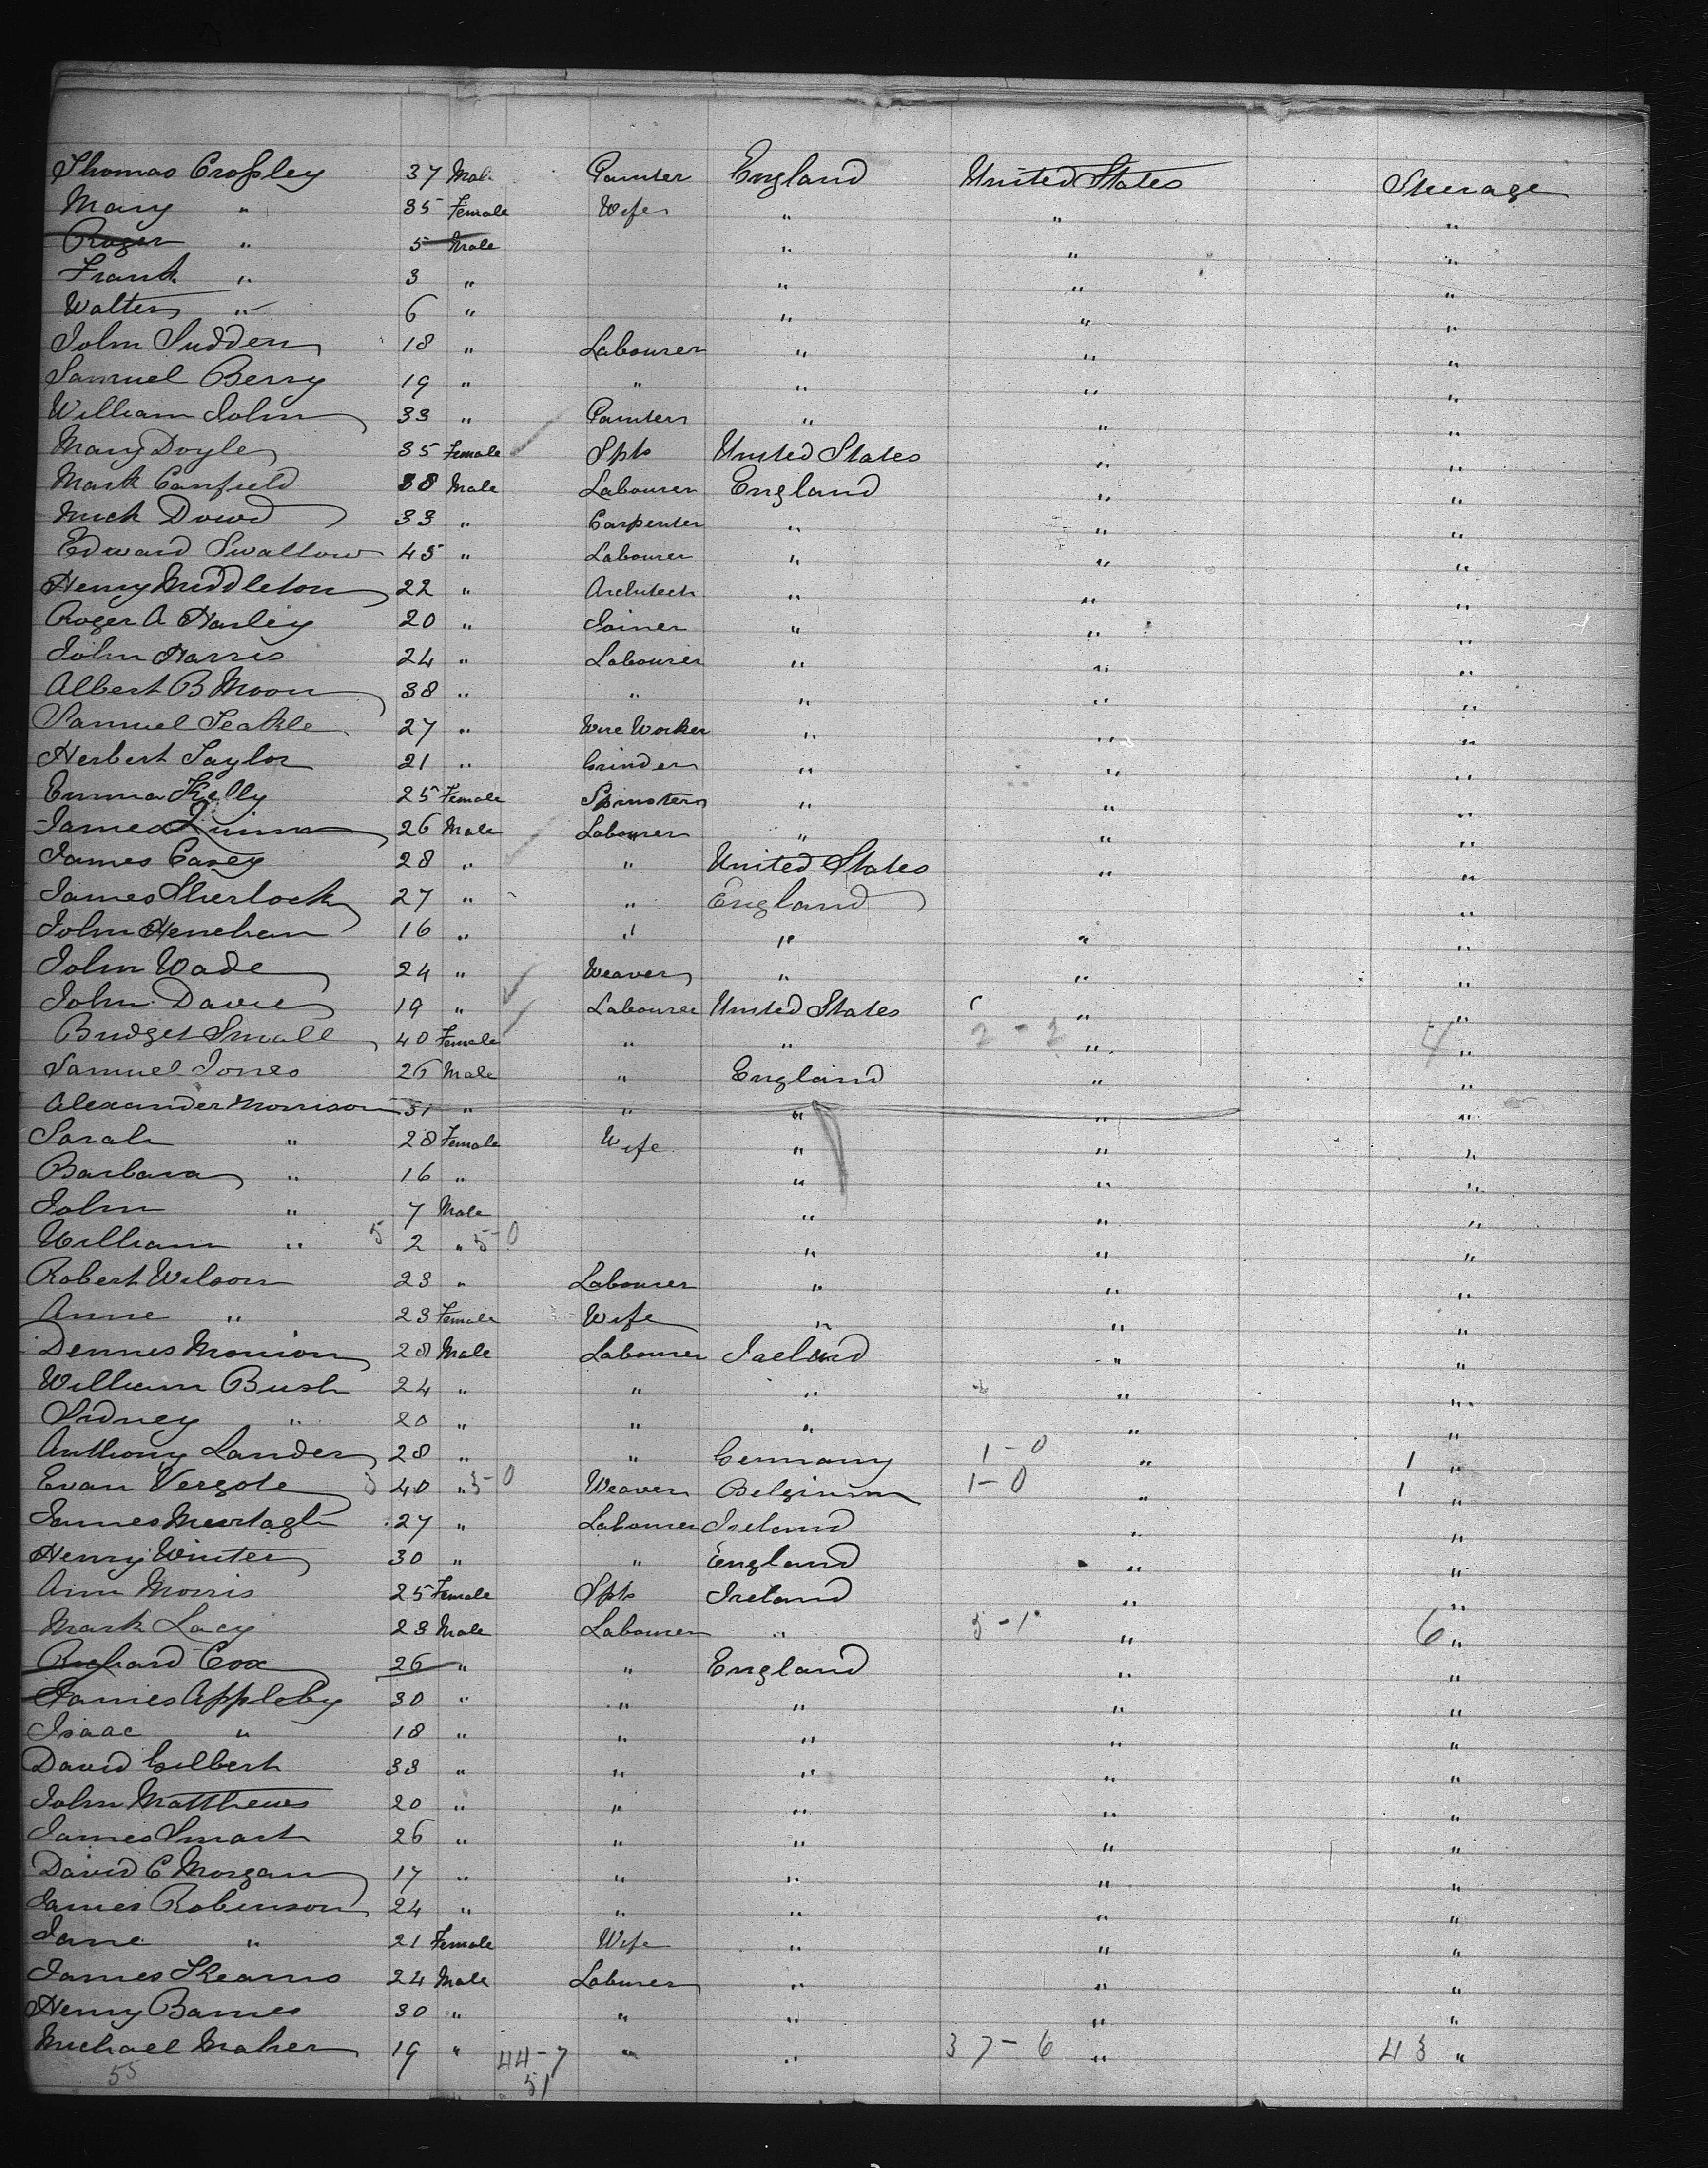 Thomas Crossley 37 Male Painter England United States Steerage
Mary " 35 Female Wife " " "
Roger " 5 Male " " "
Frank " 3 " " " "
Walter " 6 " " " "
John Sudden 18 " Labourer " " "
Samuel Berry 19 " " " " "
William John 33 " Painter " " "
Mary Doyle 35 Female Spts United States " "
Mark Canfield 38 Male Labourer England " "
Mick Dowd 33 " Carpenter " " "
Edward Swallow 45 " Labourer " " "
Henry Middleton 22 " Architect " " "
Roger A Harley 20 " Joiner " " "
John Harris 24 " Labourer " " "
Albert B Moon 38 " " " " "
Samuel Teakle 27 " Wire Worker " " "
Herbert Taylor 21 " Grinder " " "
Emma Kelly 25 Female Spinster " " "
James Quinn 26 Male Labourer " " "
James Casey 28 " " United States " "
James Sherlock 27 " " England "
John Henehan 16 " " " " "
John Wade 24 " Weaver " " "
John Davies 19 " Labourer United States " "
Bridget Small 40 Female " " 2-2 " 4 "
Samuel Jones 26 Male " England " "
Alexander Morrison 31 " " " " "
Sarah " 28 Female Wife " " "
Barbara " 16 " " " "
John " 7 Male " " "
William " 5 2 " 5-0 " " "
Robert Wilson 23 " Labourer " " "
Anne " 23 Female Wife " " "
Dennes Monion 28 Male Labourer Ireland " "
William Bush 24 " " " " "
Sidney " 20 " " " " "
Anthony Lander 28 " " Germany 1-0 " 1 "
Evan Vergote 3 40 " 3-0 Weaver Belgium 1-0 " 1 "
James Murtagh 27 " Labourer Ireland " "
Henry Winter 30 " " England " "
Ann Morris 25 Female Spts Ireland " "
Mark Lacy 23 Male Labourer " 5-1 " 6 "
Richard Cox 26 " " England " "
James Appleby 30 " " " " "
Isaac " 18 " " " " "
David Gilbert 33 " " " " "
John Matthews 20 " " " " "
James Smart 26 " " " " "
David C Morgan 17 " " " " "
James Robinson 24 " " " " "
Jane " 21 Female Wife " " "
James Kearns 24 Male Labourer " " "
Henry Barnes 30 " " " " "
Michael Maher 19 " 44-7 " " 37-6 " 43 "
55 51